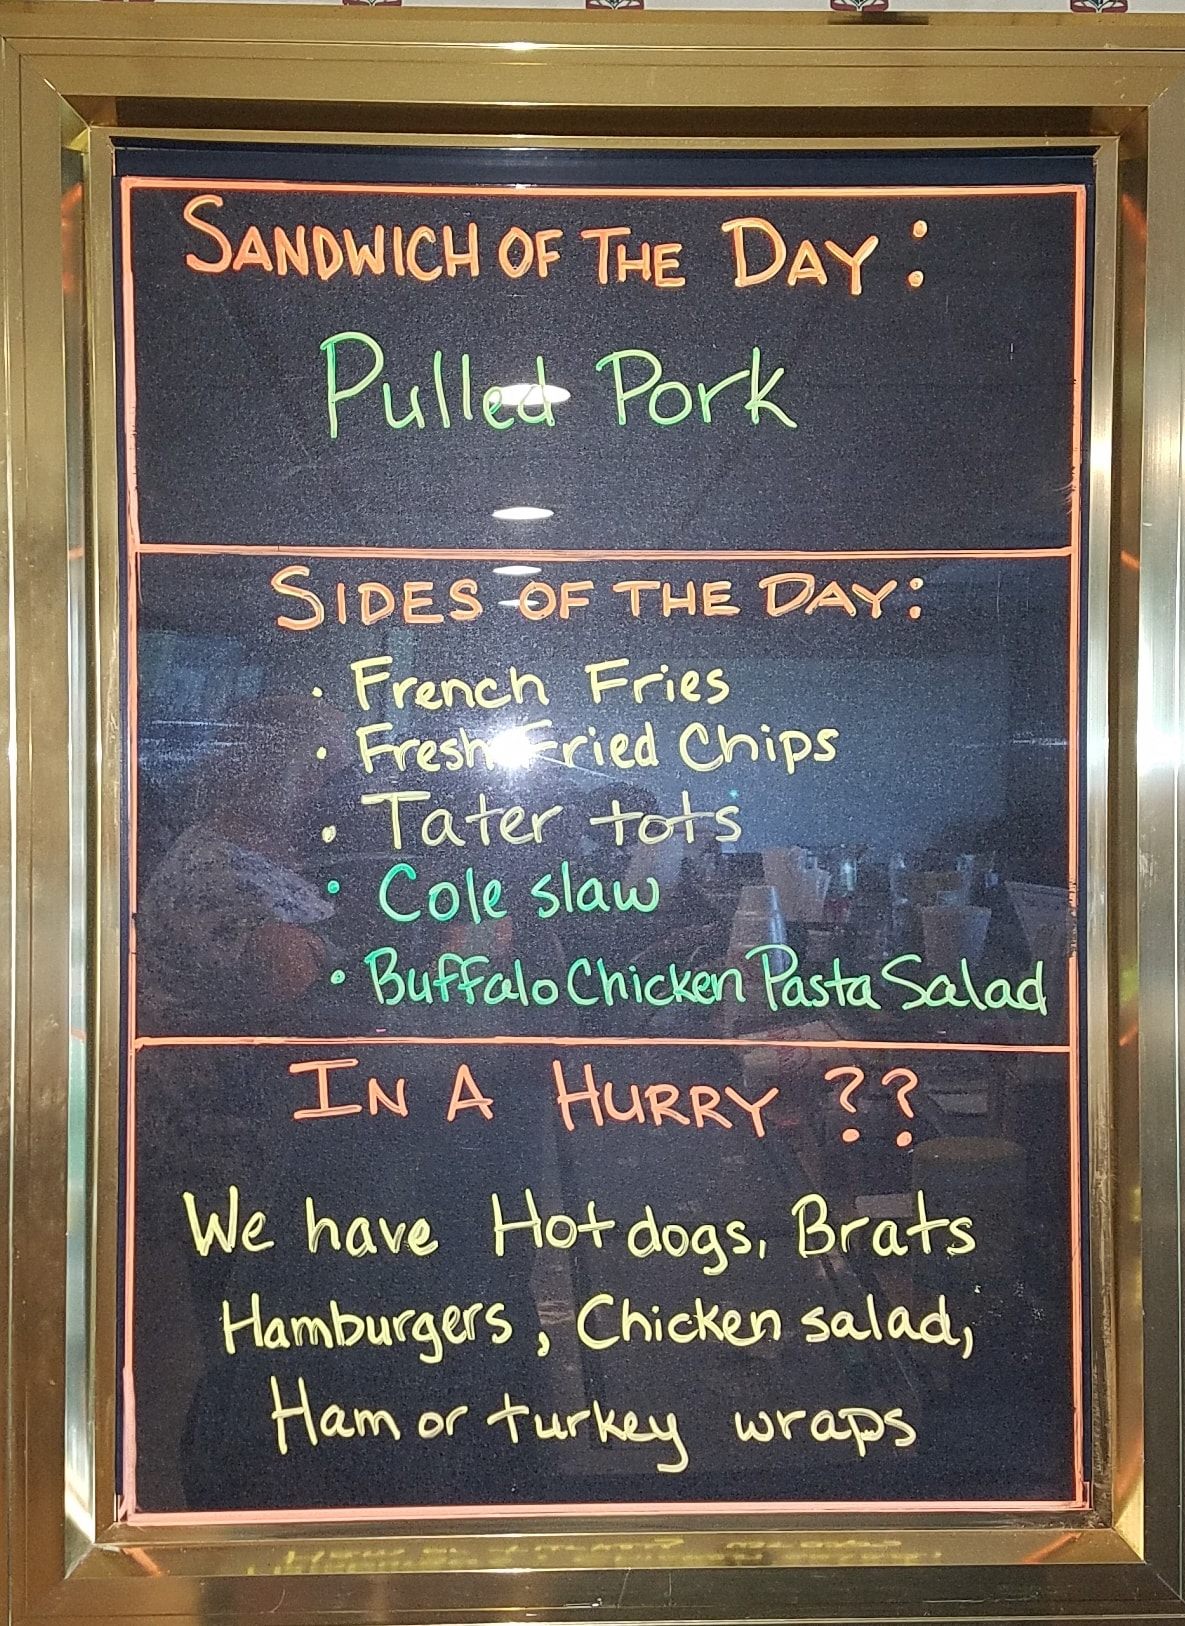 SANDWICH OF THE DAY:
Pulled Pork
SIDES OF THE DAY:
• French Fries
• Fresh Fried Chips
• Tater tots
• Cole slaw
• Buffalo Chicken Pasta Salad
IN A HURRY ??
We have Hot dogs, Brats
Hamburgers, Chicken salad,
Ham or turkey wraps